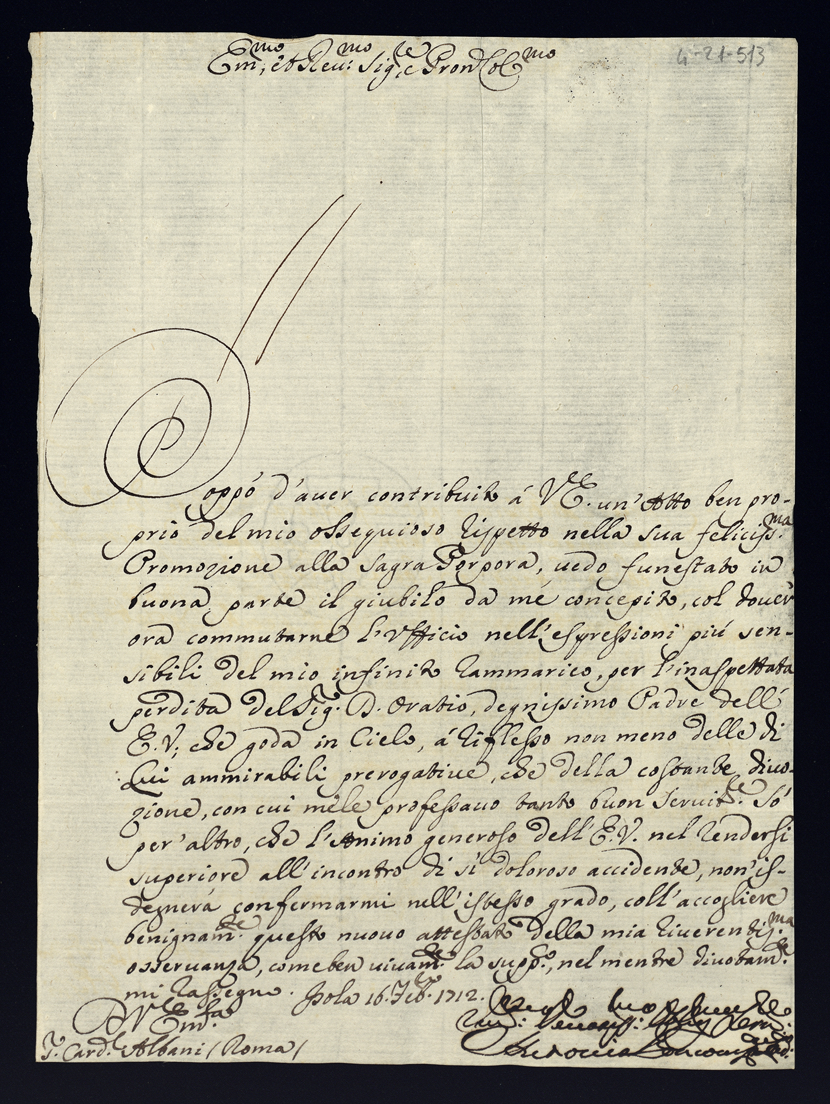 Em:mo, et Reu:mo Sig:re e Pron Col:mo
4-21-513
Doppó d'auer contribuito á V.E. un'Atto ben pro-
prio del mio ossequioso rispetto nella sua feliciss:ma
Promozione alla Sagra Porpora, uedo funestato in
buona parte il giubilo da mé concepito, col douer
ora commutarne l'Vfficio nell'espressioni piú sen-
sibili del mio infinito rammarico, per l'inaspettata
perdita del Sig:r D. Oratio, degnissimo Padre dell'
E.V., che goda in Cielo, á riflesso non meno delle di
Lui ammirabili prerogatiue, che della costante diuo-
zione, con cui mele professauo tanto buon Seruit:re. Só
per'altro, che l'Animo generoso dell'E.V. nel rendersi
superiore all'incontro di sí doloroso accidente, non'is-
degnerá confermarmi nell'istesso grado, coll'accogliere
benignam:te questo nuouo attestato della mia riuerentis:ma
osseruanza, come ben uiuam:te la supp:co, nel mentre diuotam:te
mi rassegno. Isola 16. Feb:ro 1712.
D V. Em:za
S:r Card:l Albani / Roma /